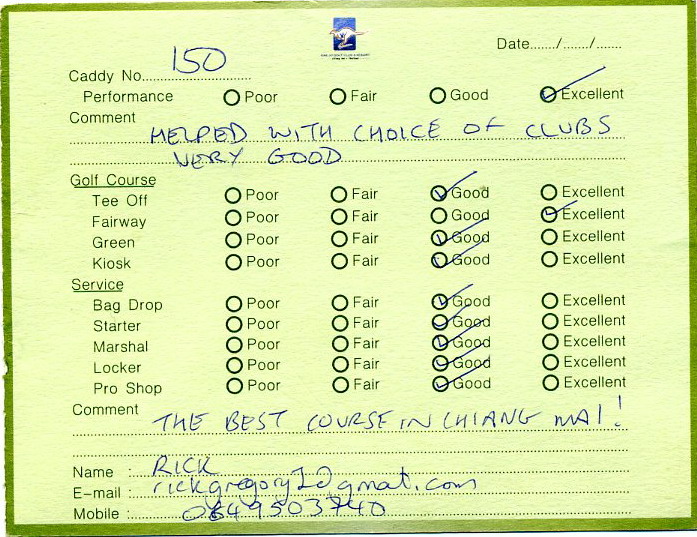 Date....../....../......
Caddy No. 150
Performance Poor Fair Good Excellent
Comment
HELPED WITH CHOICE OF CLUBS
VERY GOOD
Golf Course
Tee Off Poor Fair Good Excellent
Fairway Poor Fair Good Excellent
Green Poor Fair Good Excellent
Kiosk Poor Fair Good Excellent
Service
Bag Drop Poor Fair Good Excellent
Starter Poor Fair Good Excellent
Marshal Poor Fair Good Excellent
Locker Poor Fair Good Excellent
Pro Shop Poor Fair Good Excellent
Comment THE BEST COURSE IN CHIANG MAI!
Name : RICK
E-mail :
Mobile :